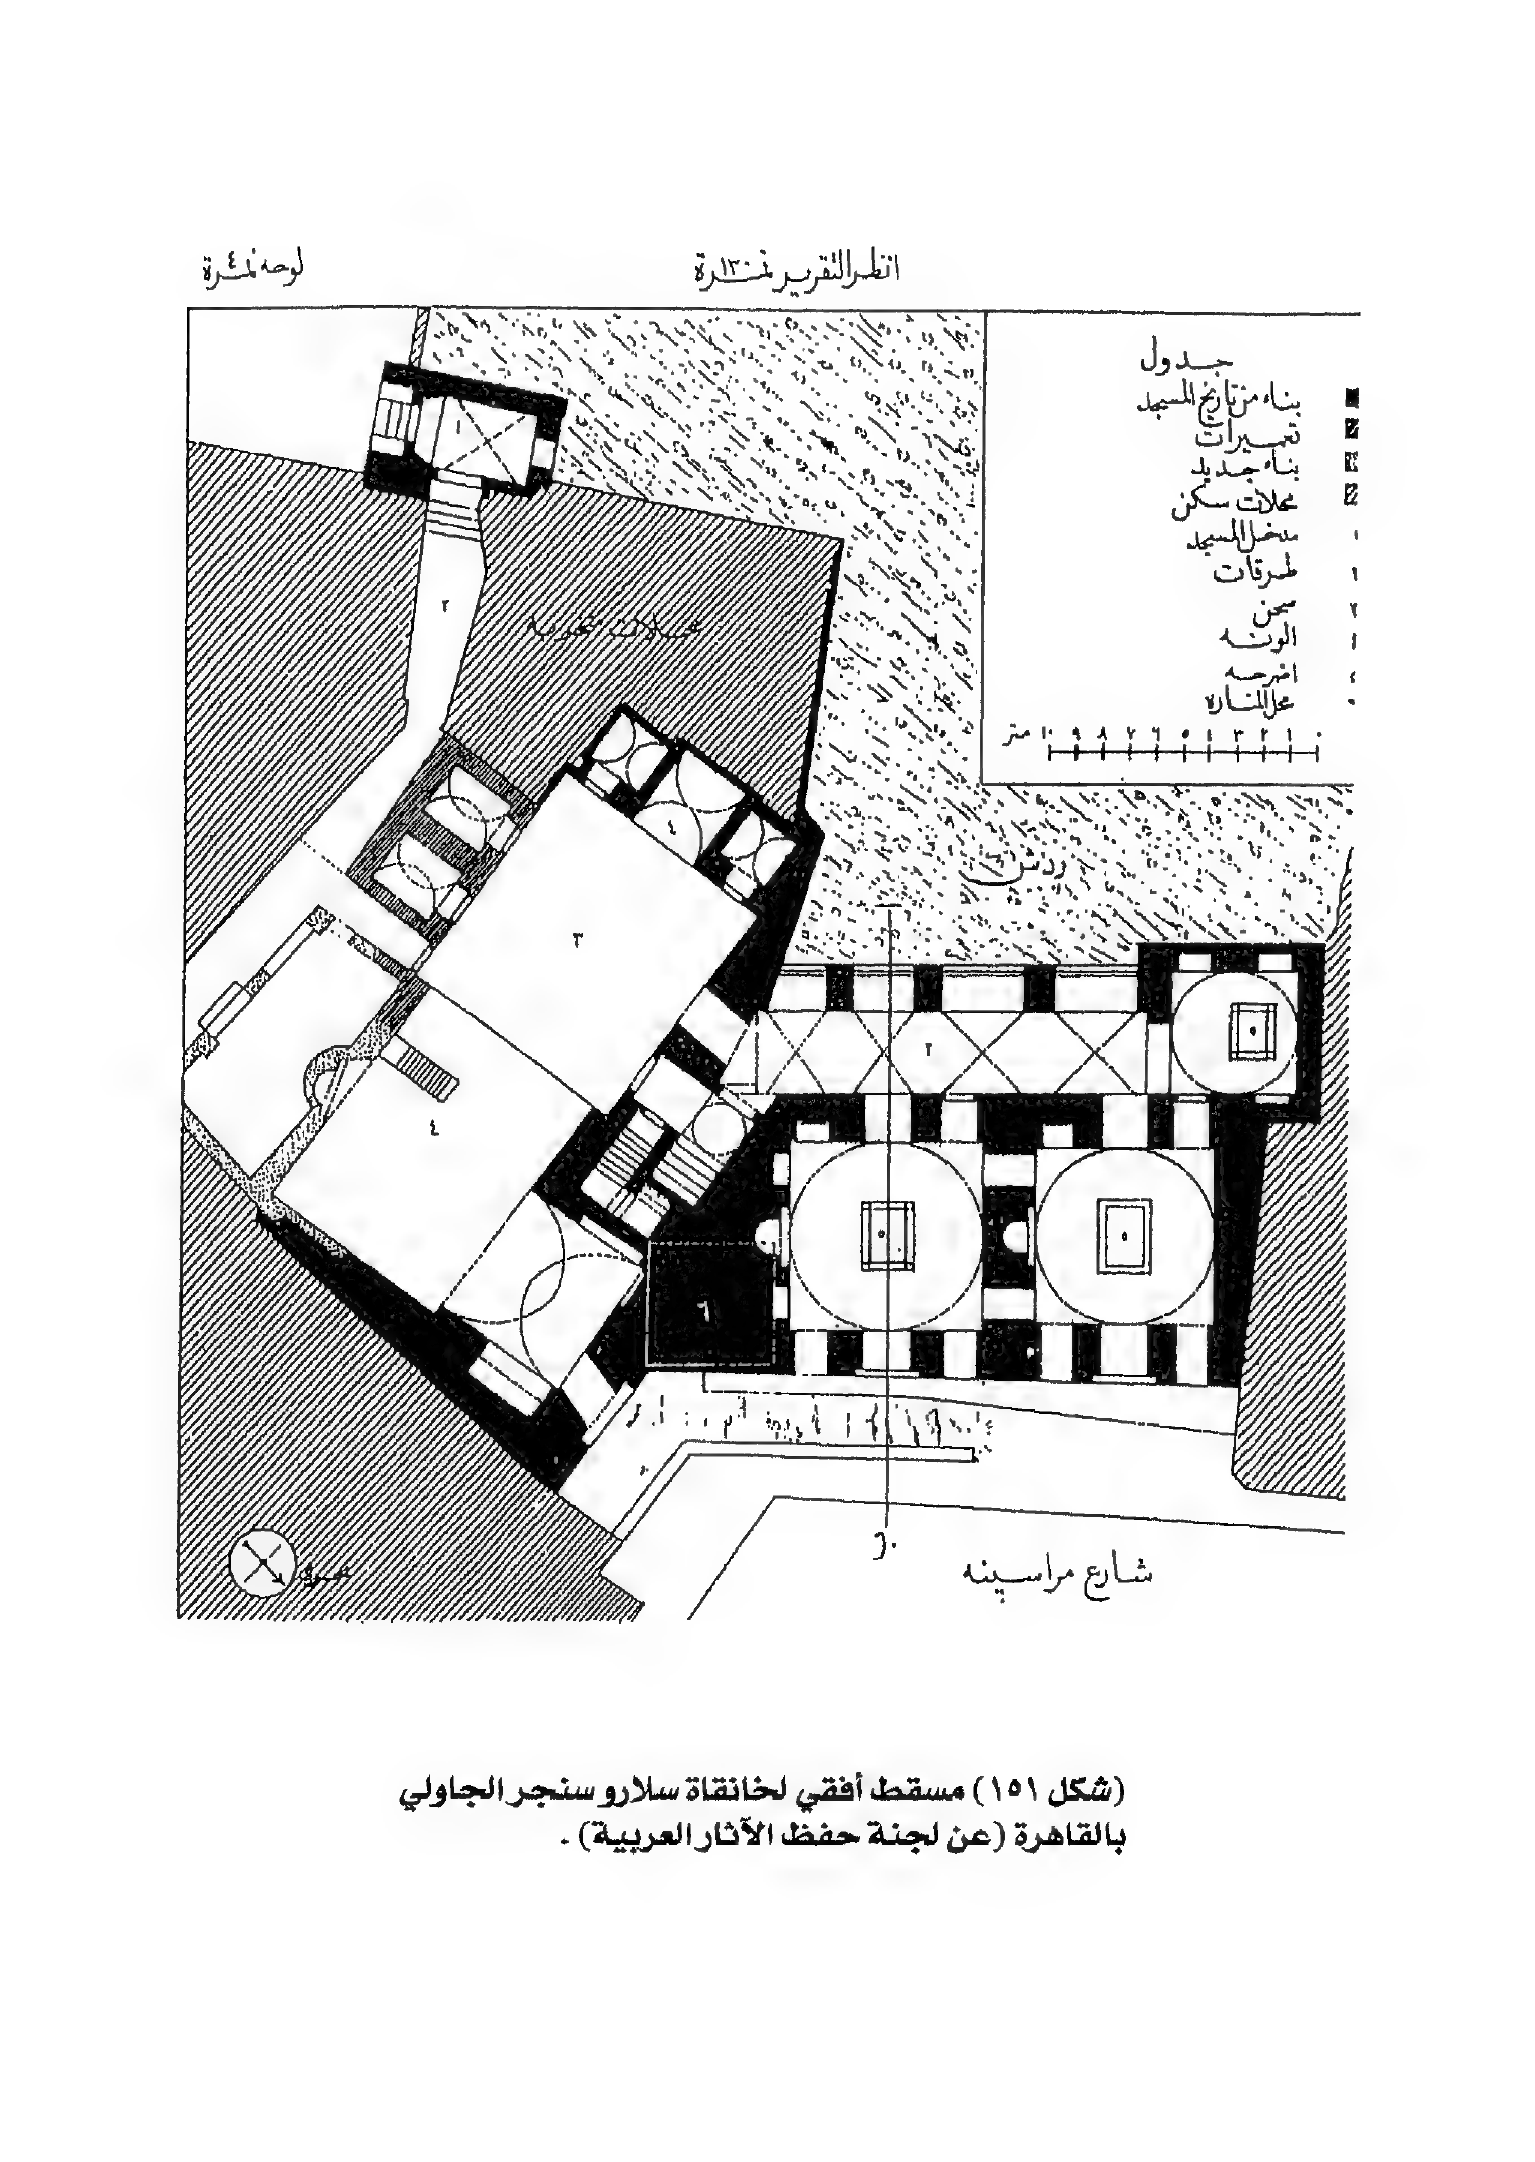 انظر التقرير نمرة ١٣٠
لوحه نمرة ٤
جدول
بناء من تاريخ المسجد
تعميرات
بناء جديد
محلات سكن
١ مدخل المسجد
٢ طرقات
٣ صحن
الونه
٤ اضرحه
محل المنارة
٠ ١ ٢ ٣ ٤ ٥ ٦ ٧ ٨ ٩ ١٠ متر
١
٢
٤
٣
٢
٤
٥
٥
٥
٦
شارع مراسينه
(شكل ١٥١) مسقط أفقي لخانقاة سلارو سنجر الجاولي
بالقاهرة (عن لجنة حفظ الآثار العربية) .